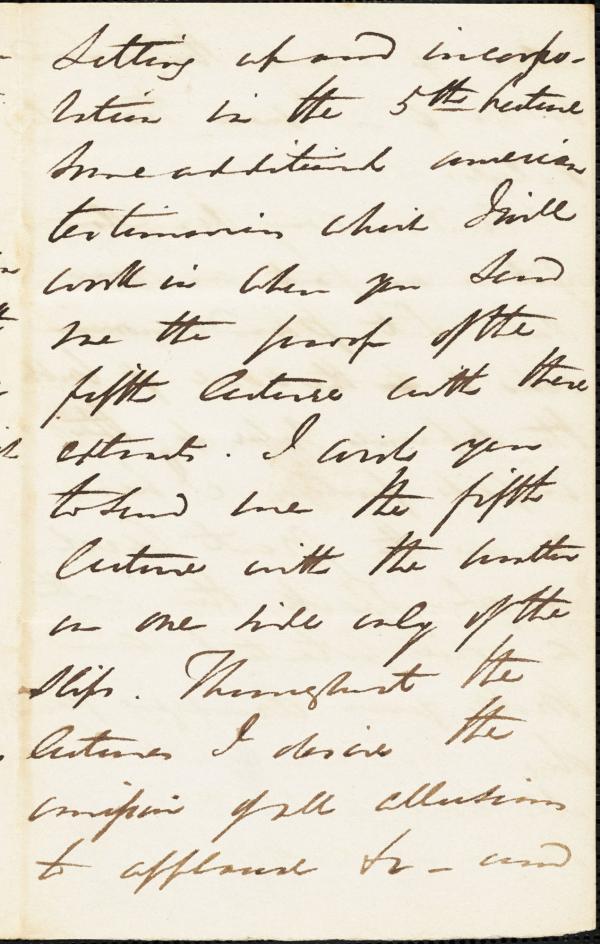 setting up and incorpo-
ration in the 5th Lecture
some additional american
testimonies which I will
work in when you send
me the proof of the
fifth lecture with these
extracts. I wish you
to send me the fifth
lecture with the matter
on one side only of the
slips. Throughout the
lectures I desire the
omission of all allusions
to applause &c - and